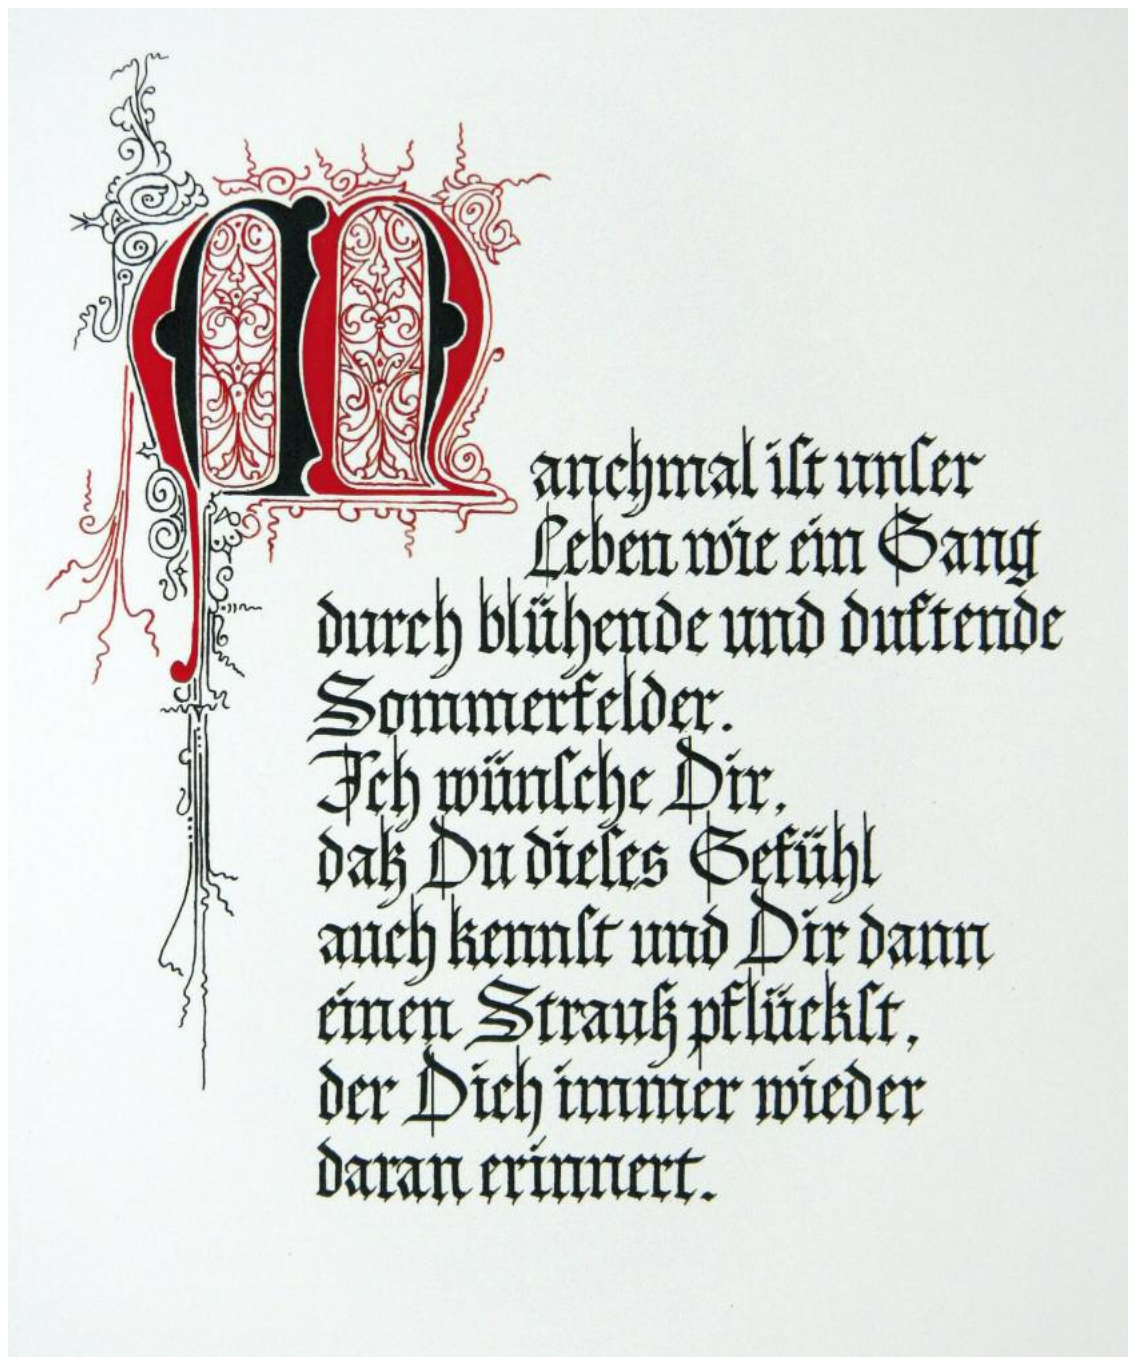 Manchmal iſt unſer
Leben wie ein Gang
durch blühende und duftende
Sommerfelder.
Ich wünſche Dir,
daß Du dieſes Gefühl
auch kennſt und Dir dann
einen Strauß pflückſt,
der Dich immer wieder
daran erinnert.